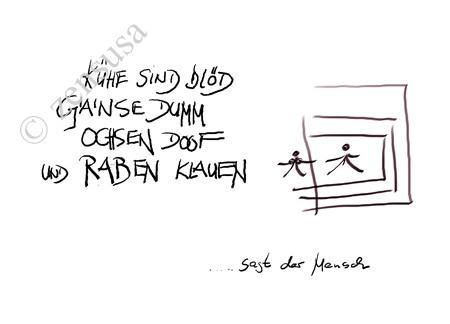 KÜHE SIND BLÖD
GÄNSE DUMM
OCHSEN DOOF
UND RABEN KLAUEN
..... sagt der Mensch
© zensusa